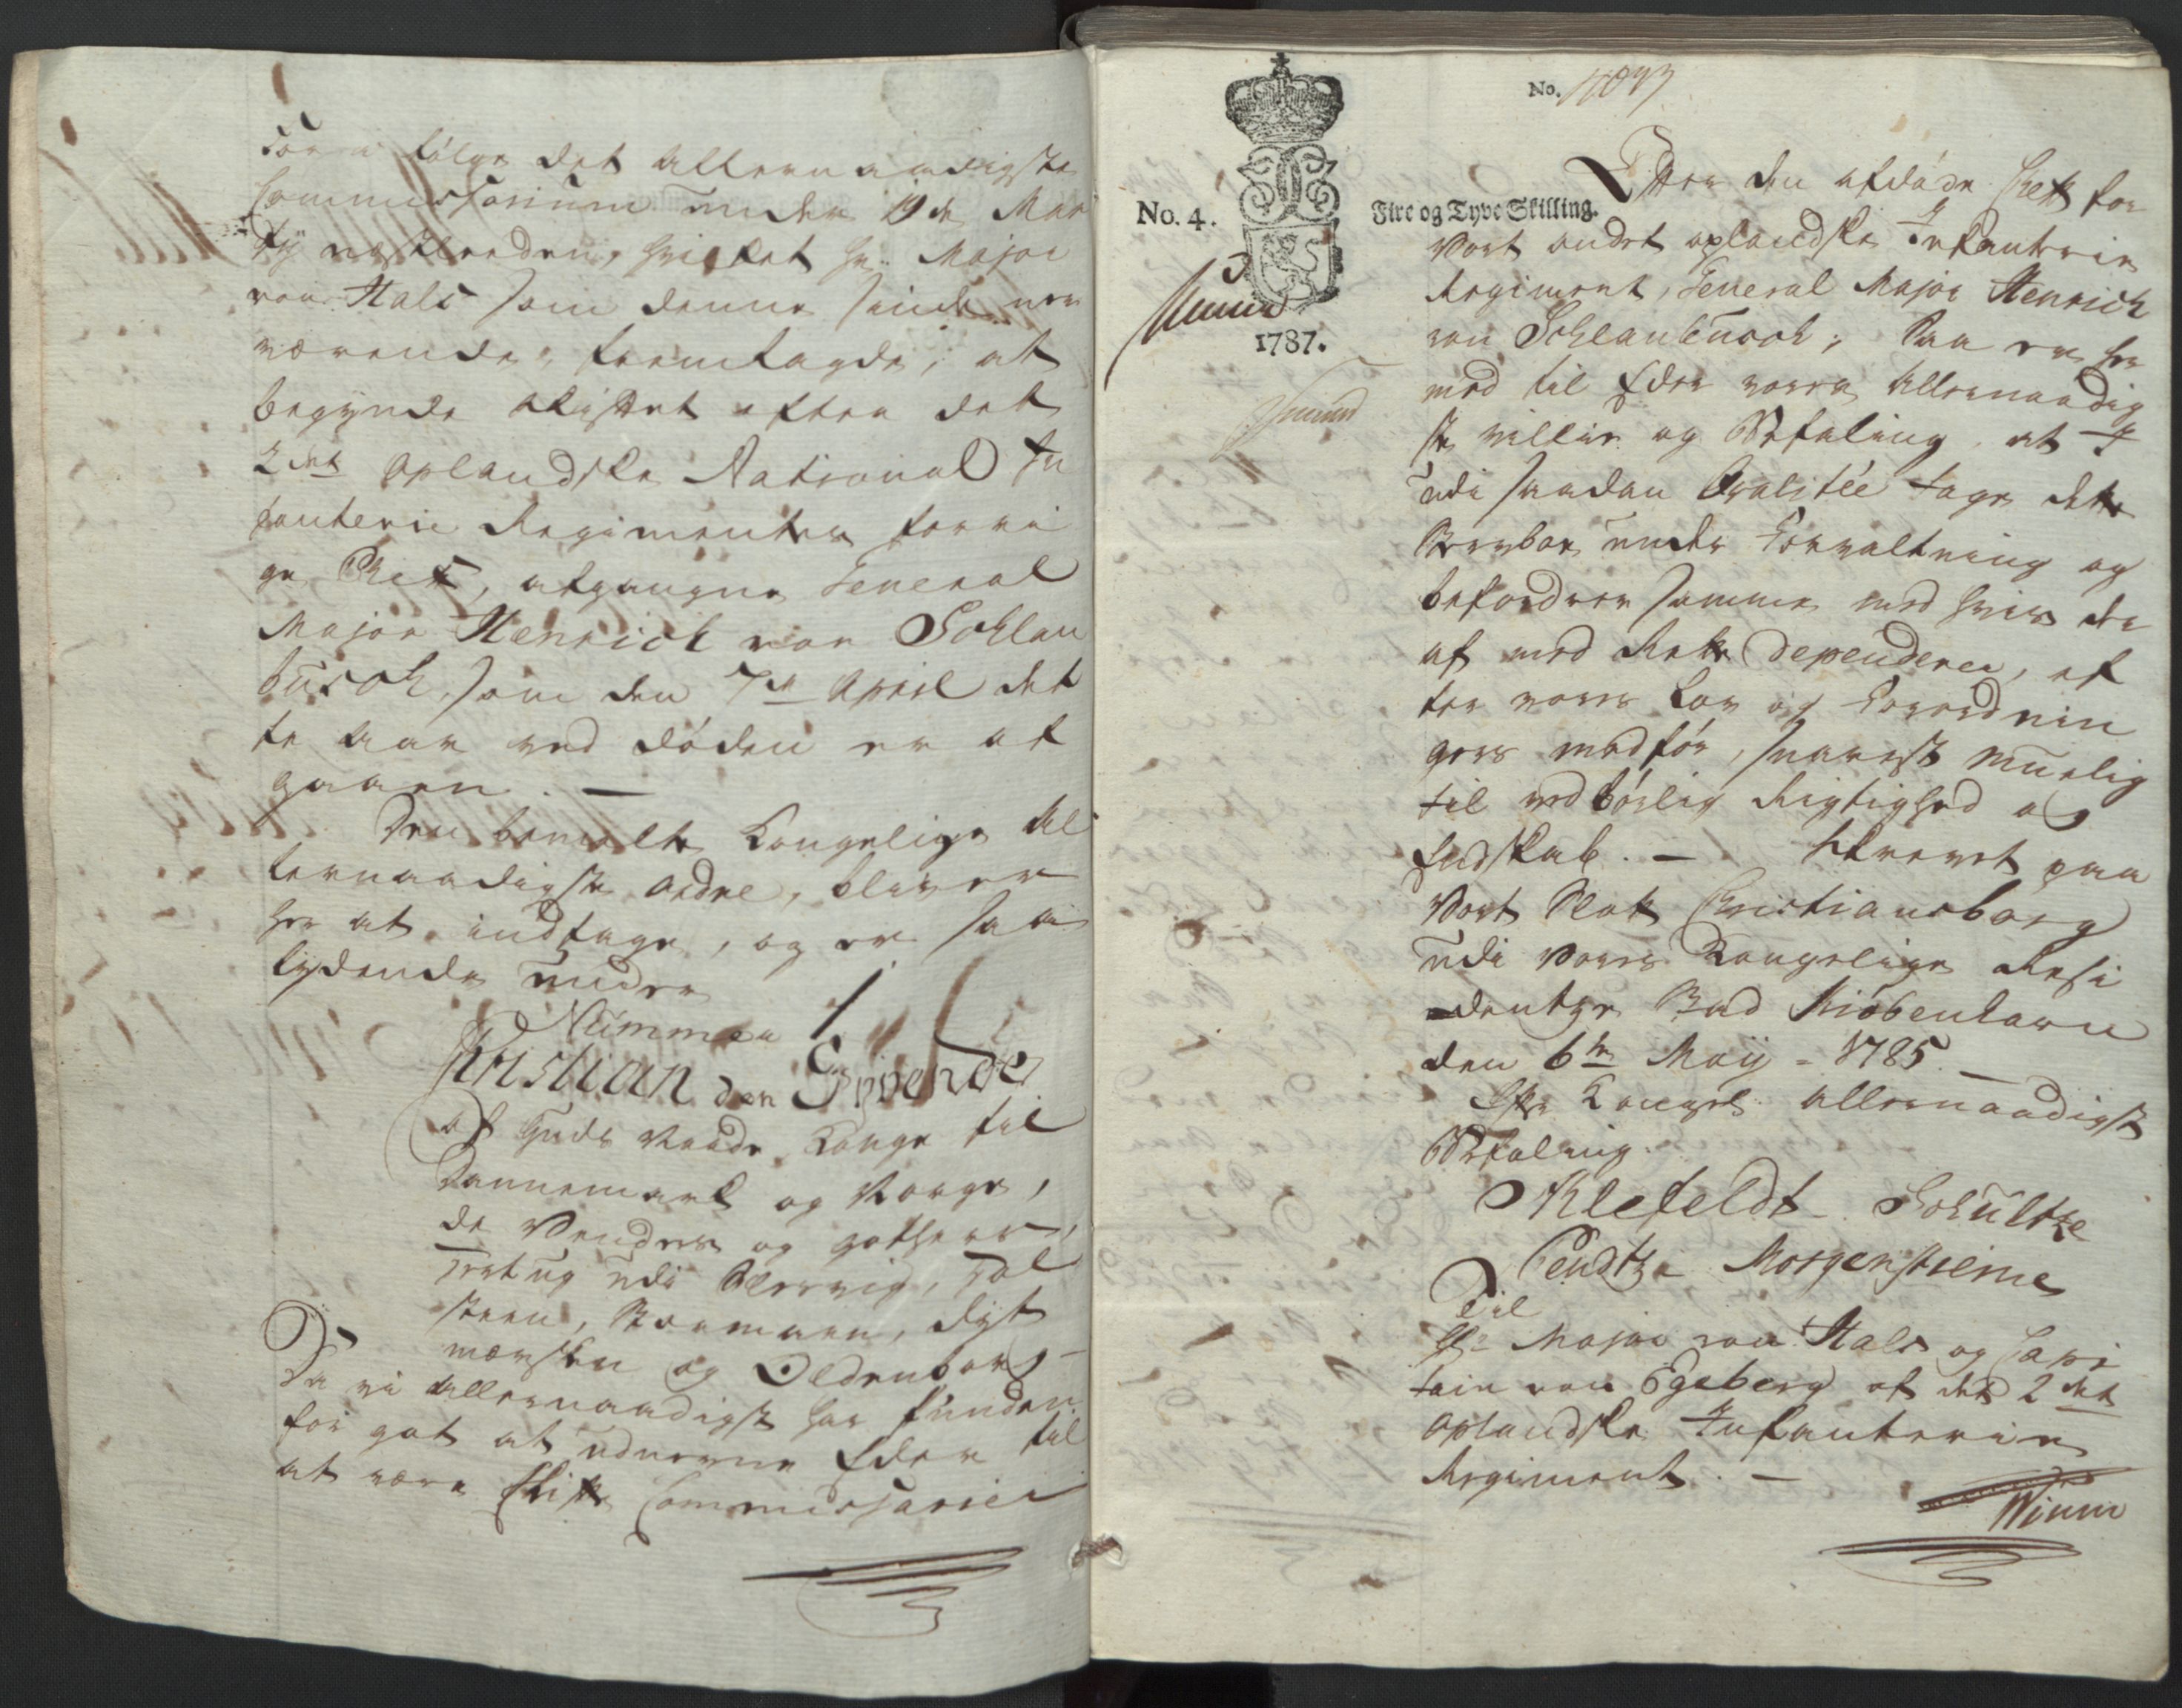 for i følge det allernaadigste
Commissorium under 19de Mar
tij næstleeden, hvilket hr. Major
von Hals som denne sinde nær
værende, fremlagde, at
begynde skiftet efter det
2det Oplandske National In
fanterie Regimentes forri
ge Chef, afgangne General
Major Henrich von Schlan
busch, som den 7de April det
te Aar ved døden er af
gaaen. —
Den bemelte Kongelige Al
lernaadigste Ordre, bliver
her at indtage, og er saa
lydende under
Nummer 1
Kristian den Syvende
af Guds Naade Konge til
Dannemark og Norge,
de Venders og Gothers,
Hertug udi Slesvig, Hol
steen, Stormarn, Dyt
mersken og Oldenborg
Da vi allernaadigst har funden
for got at udnevne Eder til
at være Skifte Commissarier
No. 1043
No. 4.
Fire og Tyve Skilling.
1787.
Efter den afdøde Chef for
Vort andet oplandske Infanterie
Regiment, General Major Henrich
von Schlanbusch; Saa er her
med til Eder vores Allernaadig
ste villie og Befaling, at I
udi saadan Qvalitée tage dette
Sterboe under Forvaltning og
befordrer samme med hvis der
af med Rette dependerer, ef
ter vores Lov og Forordnin
gers medfør, snarest muelig
til ved børlig Rigtighed og
Endskab. — Skrevet paa
Vort Slot Christiansborg
udi Vores Kongelige Resi
dentze Stad Kiøbenhavn
den 6te Maij 1785. —
Efter Kongel. allernaadigst
Befaling.
Klefeldt Schultze
Sendtze Morgenstierne
Til
Hr. Major von Hals og Capi
tain von Egeberg af det 2det
Oplandske Infanterie
Regiment. —